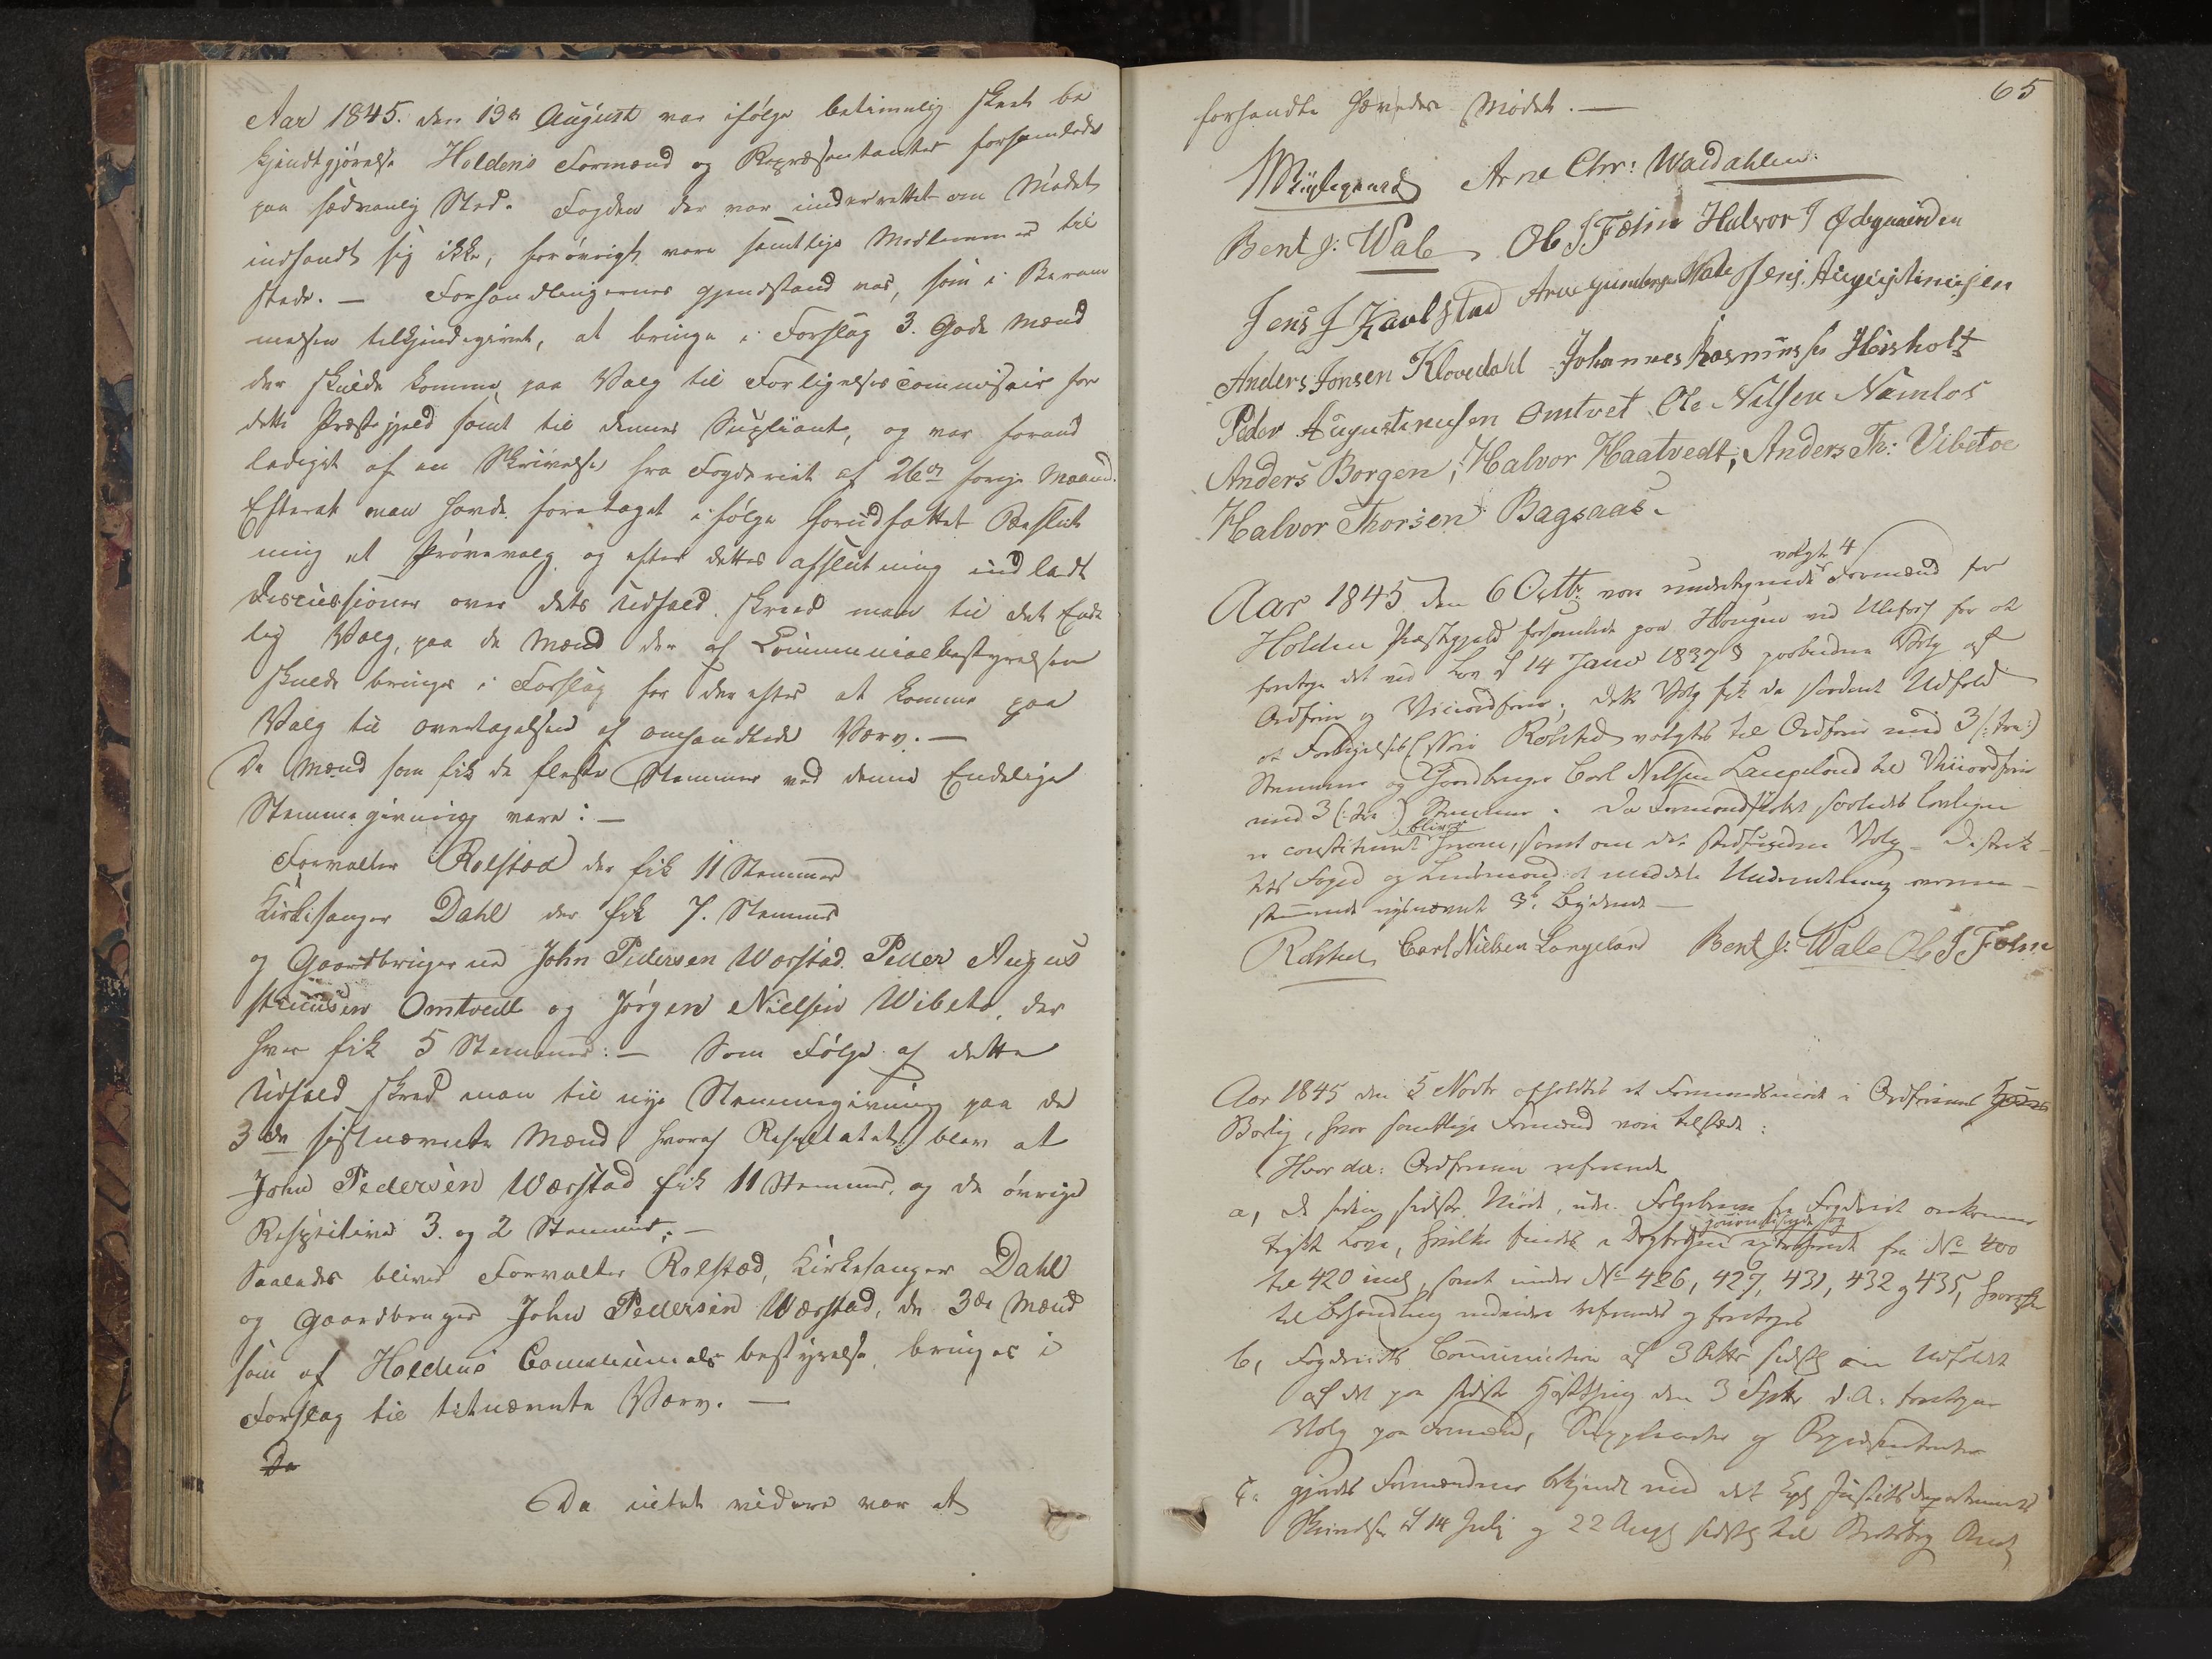 Aar 1845. den 13de August var ifølge betimelig skeet be
kjendtgjørelse Holdens Formænd og Repræsentanter forsamlede
paa sædvanlig Sted. Fogden der var underrettet om Mødet
indfandt sig ikke, forøvrigt vare samtlige Medlemmer til
stede. — Forhandlingernes Gjendstand var, som i Beram
melsen tilkjendegivet, at bringe i Forslag 3. Gode Mænd
der skulde komme paa Valg til Forligelses Commisair for
dette Præstegjeld samt til dennes Supliant, og var foran
lediget af en Skrivelse fra Fogderiet af 26de forige Maaned.
Efterat man havde foretaget ifølge forudfattet Beslut
ning et Prøvevalg og efter dettes afslutning indladt
Discussioner over dets Udfald skred man til det Ende
lig Valg, paa de Mænd der af Communalbestyrelsen
skulde bringes i Forslag for derefter at komme paa
Valg til overtagelsen af omhandlede Værv. —
De Mænd som fik de fleste Stemmer ved denne Endelige
Stemmegivning vare: —
Forvalter Rolstad der fik 11 Stemmer
Kirkesanger Dahl der fik 7. Stemmer
og Gaardbrugerne John Pedersen Værstad. Peder Augus
stinusen Omtvedt og Jørgen Nielsen Wibeto, der
hver fik 5 Stemmer: — Som Følge af dette
Udfald skred man til nye Stemmegivning paa de
3de sistnævnte Mænd hvoraf Resultatet blev at
John Pedersen Værstad fik 11 Stemmer, og de øvrige
Respective 3. og 2 Stemmer. —
Saaledes bliver Forvalter Rolstad, Kirkesanger Dahl
og Gaardbruger John Pedersen Værstad, de 3de Mænd
som af Holdens Communalebestyrelse bringes i
Forslag til titnævnte Værv. —
De
Da intet videre var at
65
forhandle hævedes Mødet. —
Arne Chr: Waldahlen.
Bent J: Wale Ole J Fæhn Halvor J Ødegaarden
Jens J Kaalstad Arne Gundersen Wale Jens Augustinusen
Anders Jonsen Klovedahl Johannes Rasmussen Heisholt
Peder Augustinusen Omtvet Ole Nilsen Namlos
Anders Borgen, Halvor Haatvedt, Anders Th: Vibetoe
Halvor Thorsen Bagaaas.
valgte 4
Aar 1845 den 6 Octbr vare undertegnede Formænd for
Holden Præstegjeld forsamlede paa Haugen ved Ulefos for at
foretage det ved Lov af 14 Janr 1837 § paabudne Valg af
Ordfører og Viceordfører; dette Valg fik da saadant Udfald
at Forligelses Rolstad valgtes til Ordfører med 3 (: tre:)
Stemmer og Gaardbruger Carl Nilsen Langeland til Viceordfører
med 3 (: tre :) Stemmer. Da Formandskabet saaledes lovligen
bliver
er constitueret herom, samt om det stedfundne Valg Distrik
tets Foged og Lensmand at meddele Underretning overens
stemmende nysnævnte § Bydende —
Rolstad Carl Nielsen Langeland Bent J: Wale Ole J Fæhn
Aar 1845 den 5 Novbr afholdtes et Formandsmøde i Ordførerens
Bolig, hvor samtlige Formænd vare tilstede:
Hvor da: Ordføreren refererede
a, de siden sidste Møde, uden Følgebrev fra Fogderiet ankomne
journaliserede og
trykte Love, hvilke findes i Dagbogen fra No 400
til 420 incl, samt under No 426, 427, 431, 432 og 435, hvorefter
til Behandling
b, Fogderiets Communication af 3 Octbr sidstl om Udfaldet
af det paa sidste Høstthing den 3 Septbr d. A: foretagne
Valg paa Formænd, Suppleanter og Repræsentanter
c. gjordes Formændene bekjendt med det Kgl Justitsdepartements
Skrivelser af 14 Juli og 22 Aug sidstl til Bratsberg Amt